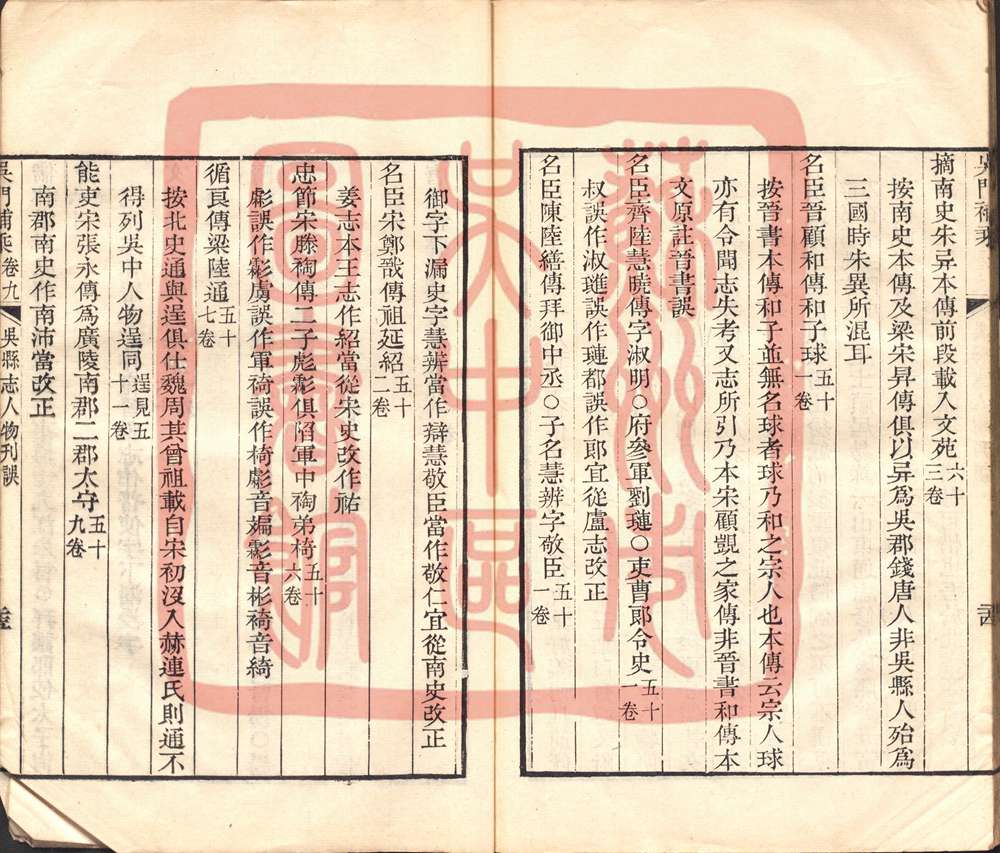 吳門補乘
摘南史朱异本傳前段載入文苑六十三卷
按南史本傳及梁宋昇傳俱以异爲吳郡錢唐人非吳縣人殆爲
三國時朱異所混耳
名臣晉顧和傳和子球五十一卷
按晉書本傳和子並無名球者球乃和之宗人也本傳云宗人球
亦有令聞志失考又志所引乃本宋顧覬之家傳非晉書和傳本
文原註晉書誤
名臣齊陸慧曉傳字淑明○府參軍劉璉○吏曹郎令史五十一卷
叔誤作淑璡誤作璉都誤作郎宜從盧志改正
名臣陳陸繕傳拜御中丞○子名慧辨字敬臣五十一卷
御字下漏史字慧辨當作辯慧敬臣當作敬仁宜從南史改正
名臣宋鄭戩傳祖延紹五十二卷
姜志本王志作紹當從宋史改作祐
忠節宋滕裪傳二子彪彨俱陷軍中裪弟椅五十六卷
循良傳梁陸通五十七卷
按北史通與逞俱仕魏周其曾祖載自宋初沒入赫連氏則通不
得列吳中人物逞同逞見五十一卷
能吏宋張永傳爲廣陵南郡二郡太守五十九卷
南郡南史作南沛當改正
吳門補乘 卷九 吳縣志人物刊誤